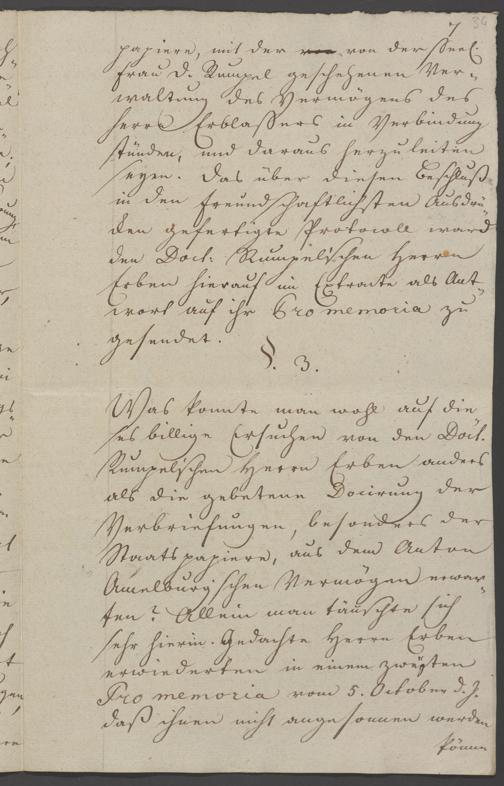 7 36
papiere, mit der von der Seel.
Frau D. Rumpel geschehenen Ver-
waltung des Vermögens des
Herrn Erblaßers in Verbindung
stünden, und daraus herzuleiten
seyen. Das über diesen Beschluß
in den freundschaftlichsten Ausdrü-
cken gefertigte Protocoll ward
den Doct. Rumpelschen Herrn
Erben hierauf im Extracte als Ant-
wort auf ihr Pro memoria zu
gesendet.
§. 3.
Was konnte man wohl auf die-
ses billige Ersuchen von den Doct.
Rumpelschen Herrn Erben anders
als die gebetene Docirung der
Verbriefungen, besonders der
Staatspapiere, aus dem Anton
Amelburg'schen Vermögen erwar-
ten? Allein man täuschte sich
sehr hierin. Gedachte Herrn Erben
erwiederten in einem zweyten
Pro memoria vom 5. October d. J.
daß ihnen nicht angesonnen werden
könne